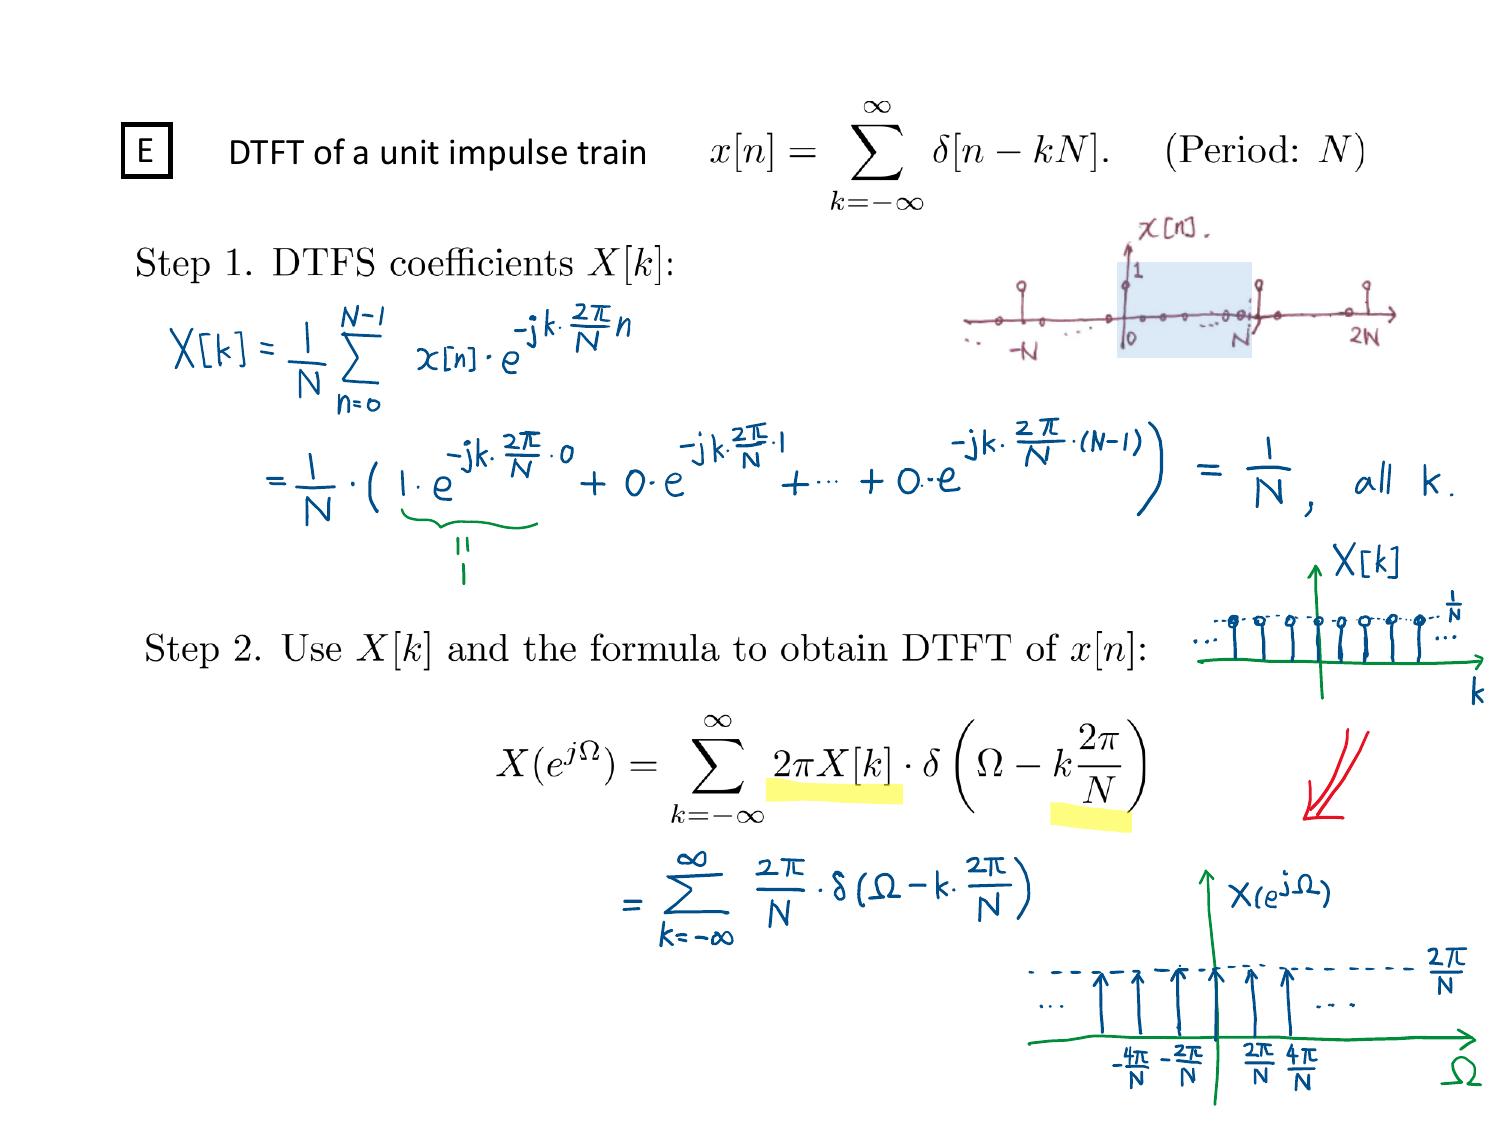 E DTFT of a unit impulse train x[n] = ∑_{k=−∞}^{∞} δ[n − kN]. (Period: N)
x[n].
1
-N 0 N 2N
Step 1. DTFS coefficients X[k]:
X[k] = 1/N ∑_{n=0}^{N-1} x[n] · e^{-jk·2π/N n}
= 1/N · ( 1 · e^{-jk·2π/N·0} + 0 · e^{-jk·2π/N·1} + ··· + 0 · e^{-jk·2π/N·(N-1)} ) = 1/N, all k.
=
1
X[k]
1/N
... ...
k
Step 2. Use X[k] and the formula to obtain DTFT of x[n]:
X(e^{jΩ}) = ∑_{k=−∞}^{∞} 2πX[k] · δ(Ω − k 2π/N)
= ∑_{k=-∞}^{∞} 2π/N · δ(Ω - k · 2π/N)
X(e^{jΩ})
2π/N
... ...
-4π/N -2π/N 2π/N 4π/N
Ω